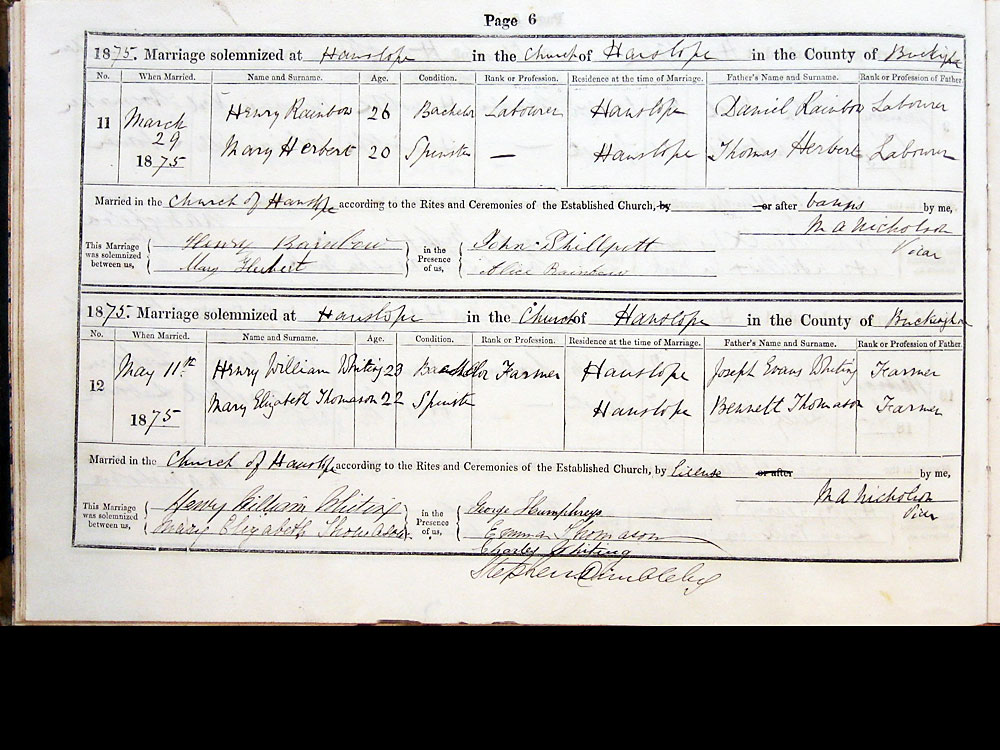 Page 6
1875. Marriage solemnized at Hanslope in the Church of Hanslope in the County of
No. When Married. Name and Surname. Age. Condition. Rank or Profession. Residence at the time of Marriage. Father's Name and Surname. Rank or Profession of Father.
11 March 29 1875
Henry Rainbow 26 Bachelor Labourer Hanslope Daniel Rainbow Labourer
Mary Herbert 20 Spinster — Hanslope Thomas Herbert Labourer
Married in the Church of Hanslope according to the Rites and Ceremonies of the Established Church, by or after banns by me,
M A Nicholson
Vicar
This Marriage was solemnized between us, Henry Rainbow in the Presence of us, John Phillpott
Mary Herbert Alice Rainbow
1875. Marriage solemnized at Hanslope in the Church of Hanslope in the County of
No. When Married. Name and Surname. Age. Condition. Rank or Profession. Residence at the time of Marriage. Father's Name and Surname. Rank or Profession of Father.
12 May 11th 1875
Henry William Whiting 23 Bachelor Farmer Hanslope Joseph Evans Whiting Farmer
Mary Elizabeth Thomason 22 Spinster Hanslope Bennett Thomason Farmer
Married in the Church of Hanslope according to the Rites and Ceremonies of the Established Church, by license or after by me,
M A Nicholson
Vicar
This Marriage was solemnized between us, Henry William Whiting in the Presence of us, George Humphreys
Mary Elizabeth Thomason Emma Thomason
Charles Whiting
Stephen Dimbleby